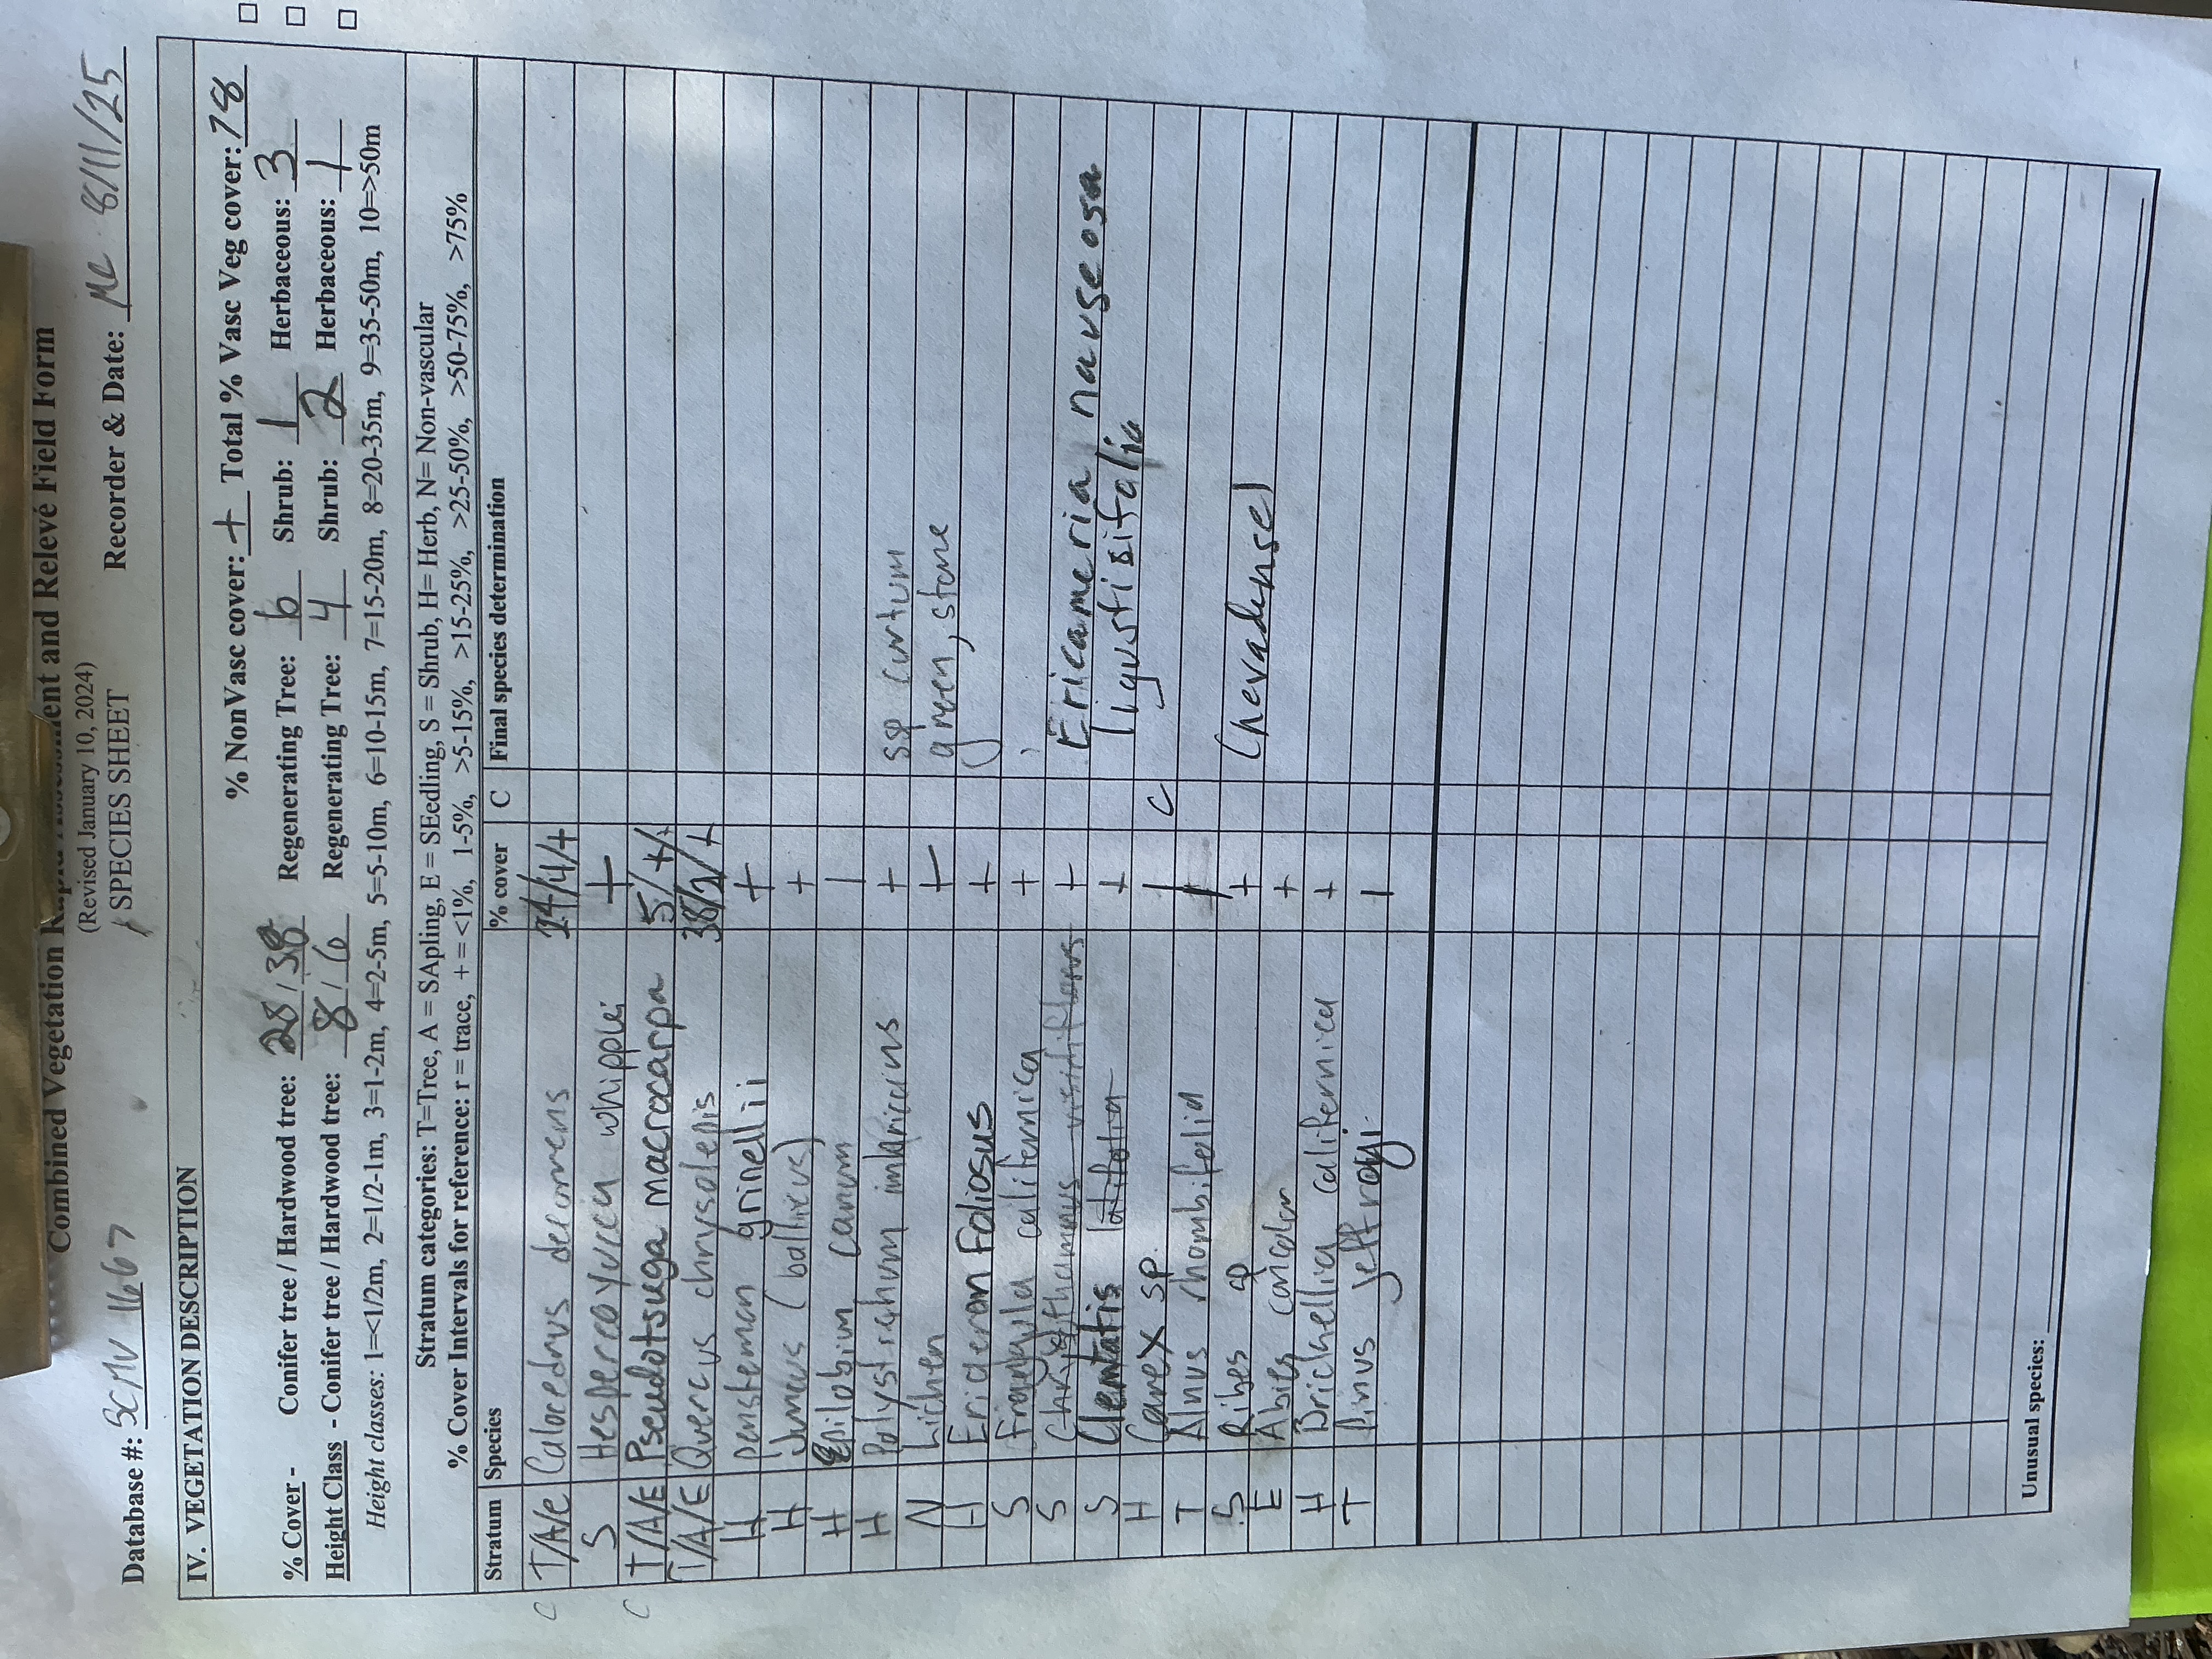 Combined Vegetation Rapid Assessment and Relevé Field Form
(Revised January 10, 2024)
SPECIES SHEET
Database #: SCMV 1667 Recorder & Date: MC 8/11/25
IV. VEGETATION DESCRIPTION
% NonVasc cover: + Total % Vasc Veg cover: 78
% Cover - Conifer tree / Hardwood tree: 28 / 38 Regenerating Tree: 6 Shrub: 1 Herbaceous: 3
Height Class - Conifer tree / Hardwood tree: 8 / 6 Regenerating Tree: 4 Shrub: 2 Herbaceous: 1
Height classes: 1=<1/2m, 2=1/2-1m, 3=1-2m, 4=2-5m, 5=5-10m, 6=10-15m, 7=15-20m, 8=20-35m, 9=35-50m, 10=>50m
Stratum categories: T=Tree, A = SApling, E = SEedling, S = Shrub, H= Herb, N= Non-vascular
% Cover Intervals for reference: r = trace, + = <1%, 1-5%, >5-15%, >15-25%, >25-50%, >50-75%, >75%
Stratum Species % cover C Final species determination
C T/A/e Calocedrus decurrens /4/+
S Hesperoyucca whipplei +
C T/A/E Pseudotsuga macrocarpa 5/+/
T/A/E Quercus chrysolepis 38/2/+
H Penstemon grinellii +
H Juncus (balticus) +
H Epilobium canum 1
H Polystichum imbricans + ssp curtum
N Lichen + green, stone
H Erigeron foliosus +
S Frangula californica +
S Chrysothamnus viscidiflorus + Ericameria nauseosa
S Clematis ligustisifolia +
H Carex sp. 1 C
T Alnus rhombifolia 1
S Ribes sp + (nevadense)
E Abies concolor +
H Drichellia californica +
T Pinus jeffreyi 1
Unusual species: